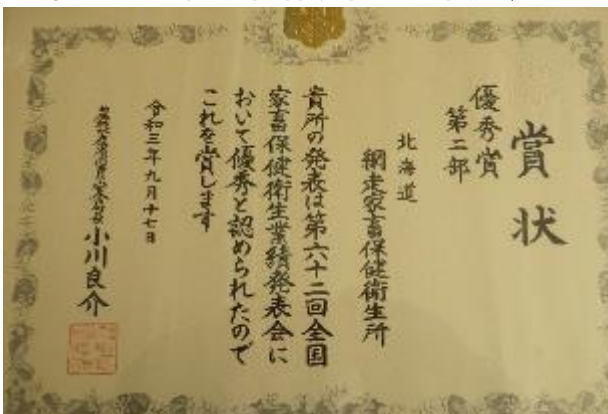 賞状
優秀賞
第二部
北海道
網走家畜保健衛生所
貴所の発表は第六十二回全国
家畜保健衛生業績発表会に
おいて優秀と認められたので
これを賞します
令和三年九月十七日
農林水産省消費・安全局長 小川良介